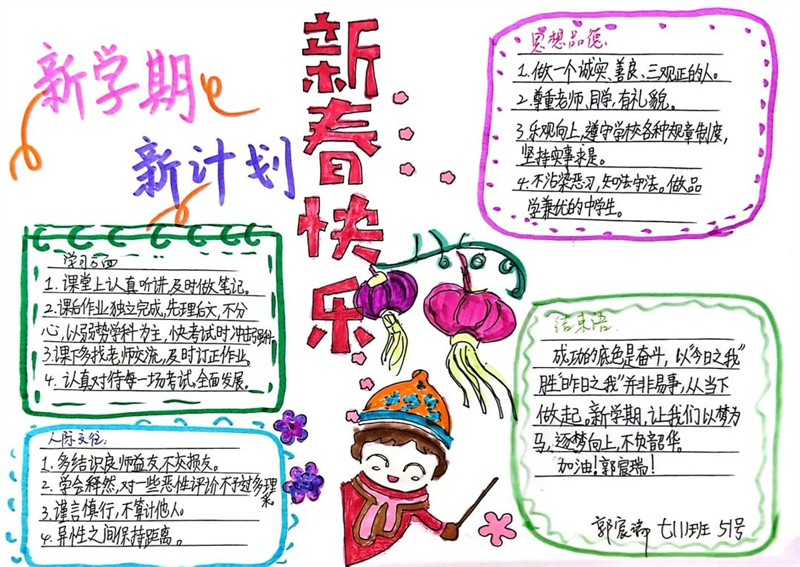 新学期
新计划
新春快乐
学习方面
1.课堂上认真听讲,及时做笔记。
2.课后作业独立完成,先理后文,不分
心,以弱势学科为主,快考试时冲击强科。
3.课下多找老师交流,及时订正作业。
4.认真对待每一场考试,全面发展。
人际交往
1.多结识良师益友不交损友。
2.学会释然,对一些恶性评价不予过多理
睬。
3.谨言慎行,不算计他人。
4.异性之间保持距离。
思想品德
1.做一个诚实、善良、三观正的人。
2.尊重老师、同学,有礼貌。
3.乐观向上,遵守学校各种规章制度,
坚持实事求是。
4.不沾染恶习,知法守法。做品
学兼优的中学生。
结束语
成功的底色是奋斗,以“今日之我”
胜“昨日之我”并非易事,从当下
做起。新学期,让我们以梦为
马,逐梦向上,不负韶华。
加油!郭宸瑞!
郭宸瑞 七11班 51号